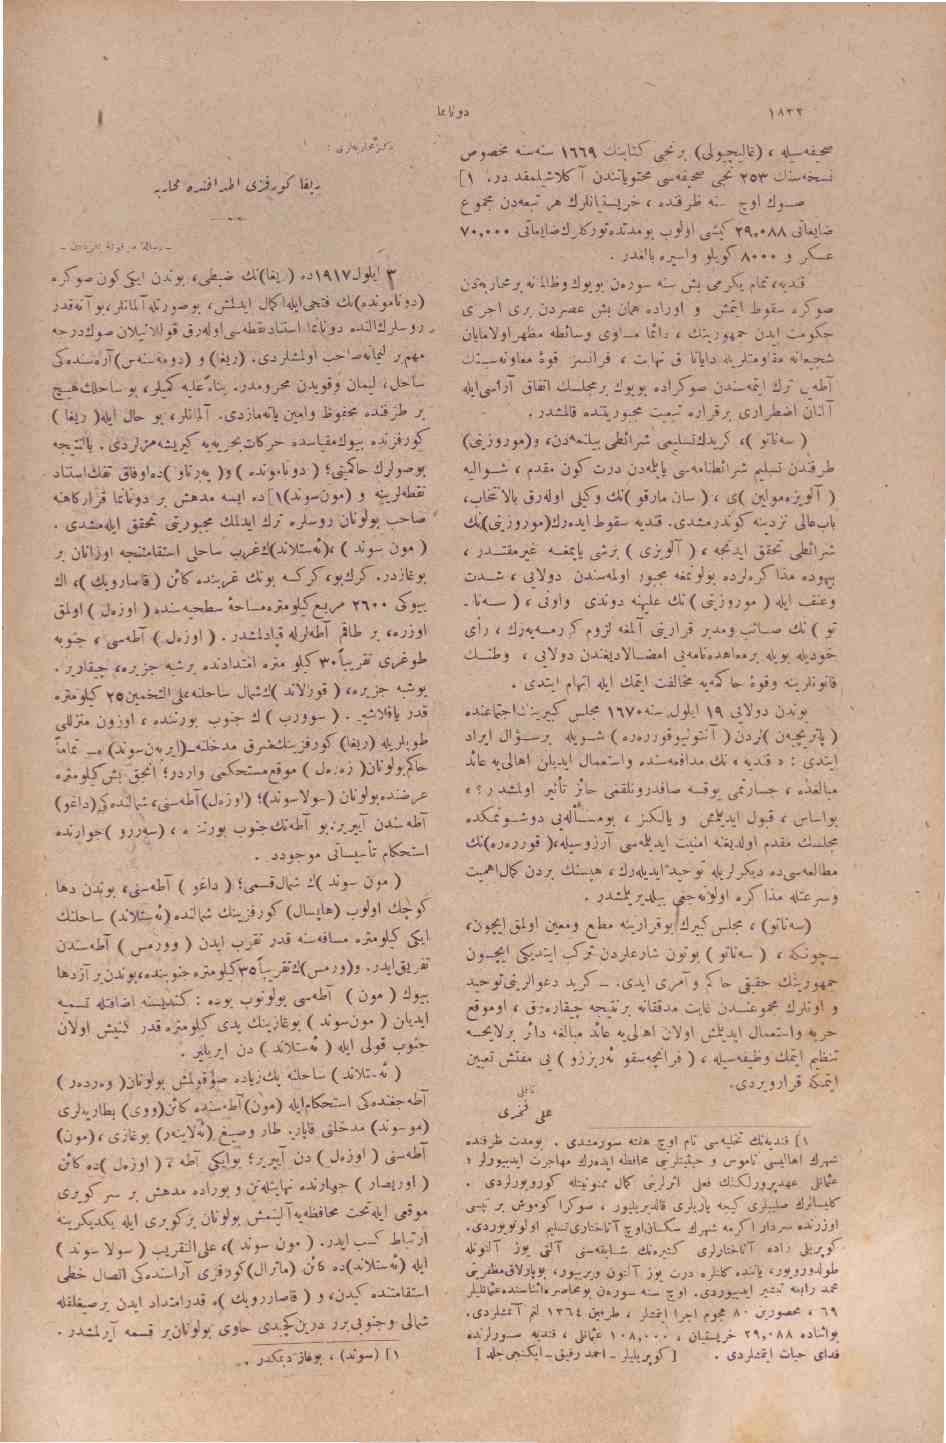 ١٨٢٢
دونانما
صحیفه‌سیله ، (غالیچیولی) برنجی كتابنك ١٦٦٩ سنه‌سنه مخصوص
نسخه‌سنك ٢٥٣ نجی صحیفه‌سی محتویاتندن آكلاشیلمقده در. [١
صوك اوچ سنه ظرفنده ، خریستیانلرك هر تبعه‌دن مجموع
ضایعاتی ٢٩,٠٨٨ كیشی اولوب بومدتده توركلرك ضایعاتی ٧٠,٠٠٠
عسكر و ٨٠٠٠ كویلو واسیره بالغدر .
قندیه، تمام یكرمی بش سنه سورەن بویوك وظالمانه بر محاربه‌دن
صوكره سقوط ایتمش و اوراده همان بش عصردن بری اجرای
حكومت ایدن جمهوریتك ، دائما مساوی وسائطه مظهر اولامایان
شجیعانه مقاومتلریله دایاناق نهایت ، فرانسز قوۀ معاونه‌سنك
آطه‌یی ترك ایتمه‌سندن صوكراده بویوك بر مجلسك اتفاق آراسی ایله
آلنان اضطراری برقراره تبعیت مجبوریتنده قالمشدر .
( سه‌ناتو )، كریدك تسلیمی شرائطی بیلنمه‌دن، و(موروزینی)
طرفندن تسلیم شرائطنامه‌سی یاپلمه‌دن درت كون مقدم ، شوالیه
( آلویزه‌مولین )ی ، ( سان مارقو )نك وكیلی اوله‌رق بالانتخاب،
باب‌عالی نزدینه كوندرمشدی. قندیه سقوط ایده‌رك (موروزینی)نك
شرائطی تحقق ایدنجه ، ( آلویزی ) برشی یاپمغه غیرمقتدر ،
بیهوده مذاكره‌لرده بولونمغه مجبور اولمه‌سندن دولایی ، شدت
وعنف ایله ( موروزینی )نك علیهنه دوندی واونی ، ( سه‌نا-
تو ) نك صائب ومدبر قراریی آلمغه لزوم كورمیه‌رك ، رأی
خودیله بویله برمعاهده‌نامه‌یی امضالادیغندن دولایی ، وطنك
قانونلرینه وقوۀ حاكمه‌یه مخالفت ایتمك ایله اتهام ایتدی .
بوندن دولایی ١٩ ایلول سنه ١٦٧٠ مجلس كبیرینك اجتماعنده
( پاتریچیه‌ن )لردن ( آنتونیوقورره‌ره ) شویله برسؤال ایراد
ایتدی : « قندیه ، نك مدافعه‌سنده واستعمال ایدیلن اهالی‌یه عائد
مبالغده ، جسارتمی یوقسه صافدرونلقمی حائز تأثیر اولمشدر ؟ »
بواساس ، قبول ایدیلمش و یالكز ، بومسئله‌یی دوشونمكده
مجلسك مقدم اولدیغنه امنیت ایدیلمه‌سی آرزوسیله، (قورره‌ره)نك
مطالعه‌سی‌ده دیكرلریله توحید ایدیله‌رك ، هپسنك بردن كمال اهمیت
وسرعتله مذاكره اولونه‌جغی بیلدیریلمشدر .
(سه‌ناتو) ، مجلس كبیرك بوقرارینه مطیع ومعین اولمق ایچون،
چونكه ، ( سه‌ناتو ) بوتون شاعرلردن تركب ایتدیكی ایچون
جمهوریتك حقیقی حاكم و آمری ایدی. ــ كرید دعوالرینی توحید
و اونلرك مجموعندن غایت مدققانه برنتیجه چیقاره‌رق ، اوموقع
حربه واستعمال ایدیلمش اولان اهالی‌یه عائد مبالغه دائر برلایحه
تنظیم ایتمك وظیفه‌سیله ، ( فرانچه‌سقو ئه‌ریززو ) یی مفتش تعیین
ایتمكه قرارویردی.
علی فخری
١] قندیه‌نك تخلیه‌سی تام اوچ هفته سورمشدی . بومدت ظرفنده
شهرك اهالیسی ناموس و حیثیتلرینی محافظه ایده‌رك مهاجرت ایدییورلر ؛
عثمانلی عهدپرورلكنك فعلی اثرلرینی كمال ممنونیتله كورویورلردی .
كلیسالرك صلیبلری كیجه یاریلری قالدیریلیور ، صوكرا كوموش بر تپسی
اوزرنده سردار اكرمه شهرك سكسان‌اوچ آناختاری تسلیم اولونویوردی.
كوپریلی زاده آناختارلری كتیره‌نك شابقه‌سنی آلتی یوز آلتونله
طولدورویور، یاننده كلنلره درت یوز آلتون ویرییور، بوپارلاق مظفریتی
محمد رابعه تبشیر ایدییوردی. اوچ سنه سوره‌ن بومحاصره اثناسنده عثمانلیلر
٦٩ ، محصورین ٨٠ هجوم اجرا ایتمشلر ، طرفین ١٣٦٤ لغم آتمشلردی.
بواثناده ٢٩,٠٨٨ خریستیان ، ١٠٨,٠٠٠ عثمانلی ، قندیه سورلرنده
فدای حیات ایتمشلردی . [ كوپریلیلر ـ احمد رفیق ـ ایكنجی جلد ]
دكز محاربه‌لری :
ریغا كورفزی اطرافنده محاربه
٣ ایلول ١٩١٧ده (ریغا)نك ضبطی، بوندن ایكی كون صوكره
(دونامونده)نك فتحی‌ایله اكمال ایدلمش، بوصورتله آلمانلر، بوآنه‌قدر
روسلرك النده دونانما استنادنقطه‌سی اوله‌رق قوللانیلان صوك‌درجه
مهم‌بر لیمانه صاحب اولمشلردی. (ریغا) و (دومه‌سنه‌س) آره‌سنده‌كی
ساحل، لیمان وقویدن محرومدر. بناءً علیه كمیلر، بو ساحلك هیچ
بر طرفنده محفوظ وامین یاته‌مازدی. آلمانلر، بو حال ایله ( ریغا )
كورفزنده بیوك‌مقیاسده حركات بحریه‌یه كیریشه‌مزلردی. بالنتیجه
بوصولرك حاكمیتی؛ ( دونامونده ) و( په‌رناو )ده اوفاق تفك استناد
نقطه‌لرینه و (مون‌سوند)[١ ده ایسه مدهش بر دونانما قرارگاهنه
صاحب بولونان روسلره ترك ایدلمك مجبوریتی تحقق ایله‌مشدی .
( مون سوند ) ، (ئه‌ستلاند)ك غرب ساحلی استقامتنجه اوزانان بر
بوغازدر. كرك بو، كركسه بونك غربنده كائن ( قاسارویك ) ، اك
بیوكی ٢٦٠٠ مربع كیلومتره مساحۀ سطحیه‌سنده ( اوزەل ) اولمق
اوزره، بر طاقم آطه‌لرله قپادلمشدر. ( اوزەل ) آطه‌سی ، جنوبه
طوغری تقریباً ٣٠ كیلو متره امتدادنده برشبه جزیره، چیقاریر .
بوشبه جزیره، ( قورلاند )ك شمال ساحلنه علی‌التخمین ٢٥ كیلومتره
قدر یاقلاشیر . ( سوورب ) ك جنوب بورننده ، اوزون منزللی
طوپلریله (ریغا) كورفزینك شرق مدخلنه-(ایربه‌ن‌سوند) ه- تماماً
حاكم بولونان( زه‌ره‌ل ) موقع مستحكمی واردر؛ انجق بش كیلومتره
عرضنده بولونان (سولاسوند)؛ (اوزەل) آطه‌سنی، شمالنده‌كی (داغو)
آطه‌سندن آییریر؛ بو آطه‌نك جنوب بورننده ، (سه‌ررو) جوارنده
استحكام تأسیساتی موجوددر .
( مون سوند )ك شمال قسمی؛ ( داغو ) آطه‌سنی، بوندن دها
كوچك اولوب (هاپسال) كورفزینك شمالنده (ئه‌ستلاند) ساحلنك
ایكی كیلومتره مسافه‌سنه قدر تقرب ایدن ( وورمس ) آطه‌سندن
تفریق‌ایدر. و(ورمس)ك تقریباً ٣٥ كیلومتره جنوبنده، بوندن‌بر آزدها
بیوك ( مون ) آطه‌سی بولونوب بوده : كندیسنه اضافتله تسمیه
ایدیان ( مون‌سوند ) بوغازینك یدی كیلومتره قدر كنیش اولان
جنوب قولی ایله ( ئه‌ستلاند ) دن ایریلیر .
( ئه‌ستلاند ) ساحلنه پك‌زیاده صوقولمش بولونان( وەردەر )
آطه‌جغنده‌كی استحكام ایله (مون) آطه‌سنده كائن (ووی) بطاریه‌لری
(موسوند) مدخلنی قاپار. طار وصیغ (ئه‌لاینه‌ر) بوغازی، (مون)
آطه‌سنی ( اوزەل ) دن آییریر؛ بوایكی آطه ، ( اوزەل )ده كائن
( اوریصار ) جوارنده نهایتله‌نن و بوراده مدهش بر سركوپری
موقعی ایله تحت محافظه‌یه آلینمش بولونان بركوپری ایله یكدیكرینه
ارتباط كسب ایدر. ( مون سوند )، علی‌التقریب ( سولا سوند )
ایله (ئه‌ستلاند)ده كائن (ماترال) كورفزی آراسنده‌كی اتصال خطی
استقامتنده كیدن، و ( قاسارویك )ه قدرامتداد ایدن برصیغلقله
شمالی وجنوبی برر درین‌كچیدی حاوی بولونان‌بر قسمه آیرلمشدر .
١] (سوند) ، بوغاز دیمكدر .